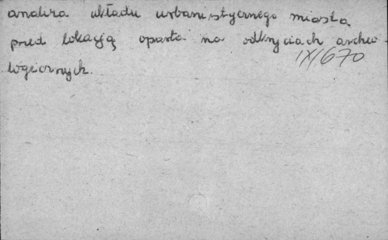 analiza układu urbanistycznego miasta
pred lokacją oparta na odkryciach archeo-
logicznych.
IX/670